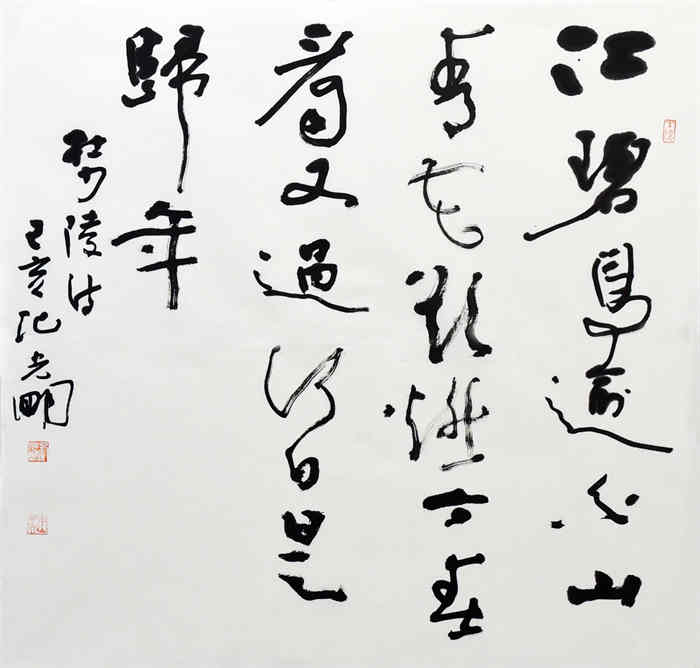 江碧鳥逾白山
青花欲燃今春
看又過何日是
歸年
杜少陵诗
己亥光